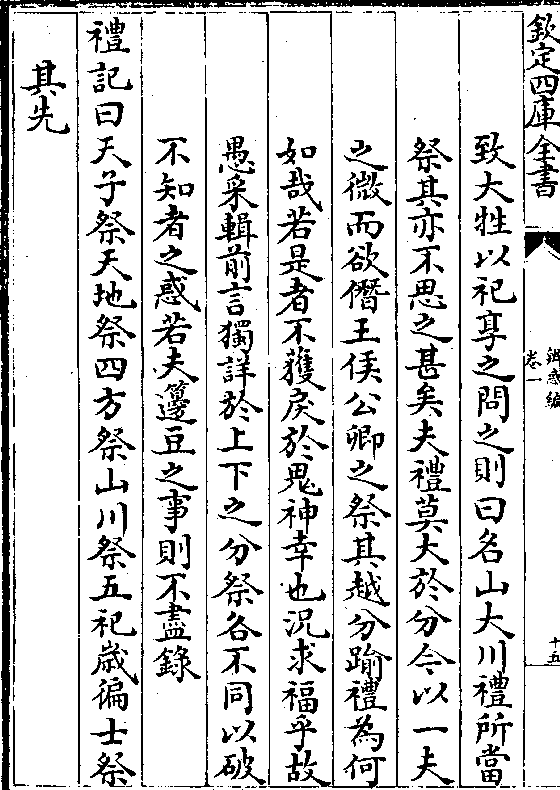 欽定四庫全書
辨惑編
卷一
十五
致大牲以祀享之問之則曰名山大川禮所當
祭其亦不思之甚矣夫禮莫大於分今以一夫
之微而欲僭王侯公卿之祭其越分踰禮為何
如哉若是者不獲戾於鬼神幸也況求福乎故
愚采輯前言獨詳於上下之分祭各不同以破
不知者之惑若夫籩豆之事則不盡錄
禮記曰天子祭天地祭四方祭山川祭五祀歲徧士祭
其先